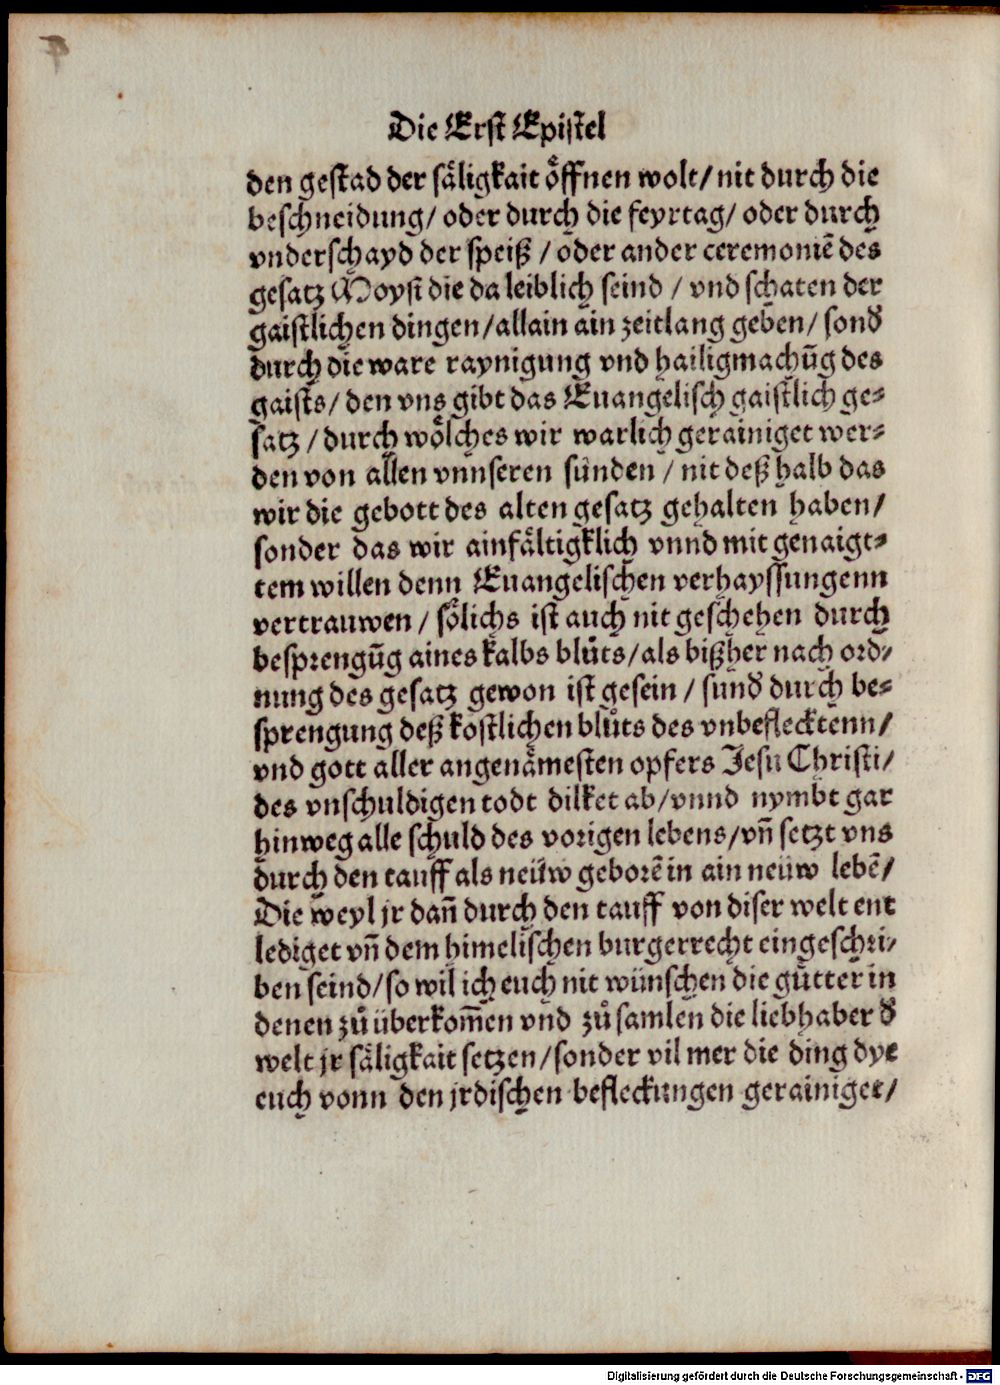 Die Erst Epistel
den gestad der säligkait öffnen wolt/ nit durch die
beschneidung/ oder durch die feyrtag/ oder durch
vnderschayd der speiß / oder ander ceremoniē des
gesatz Moysi die da leiblich seind / vnd schaten der
gaistlichen dingen/allain ain zeitlang geben/ sond
durch die ware raynigung vnd hailigmachūg des
gaists/ den vns gibt das Euangelisch gaistlich ge-
satz / durch wölches wir warlich gerainiget wer-
den von allen vnnseren sünden / nit deß halb das
wir die gebott des alten gesatz gehalten haben/
sonder das wir ainfältigklich vnnd mit genaigt-
tem willen denn Euangelischen verhayssungenn
vertrauwen / sölichs ist auch nit geschehen durch
besprengūg aines kalbs blůts/als bißher nach ord-
nung des gesatz gewon ist gesein / sund durch be-
sprengung deß kostlichen blůts des vnbeflecktenn/
vnd gott aller angenämesten opfers Jesu Christi/
des vnschuldigen todt dilket ab/vnnd nymbt gar
hinweg alle schuld des vorigen lebens/vn̄ setzt vns
durch den tauff als neüw geborē in ain neüw lebē/
Die weyl jr dan̄ durch den tauff von diser welt ent
lediget vn̄ dem himelischen burgerrecht eingeschri-
ben seind/so wil ich euch nit wünschen die gütter in
denen zů überkom̄en vnd zů samlen die liebhaber d
welt jr säligkait setzen/sonder vil mer die ding dye
euch vonn den jrdischen befleckungen gerainiget/
Digitalisierung gefördert durch die Deutsche Forschungsgemeinschaft - DFG